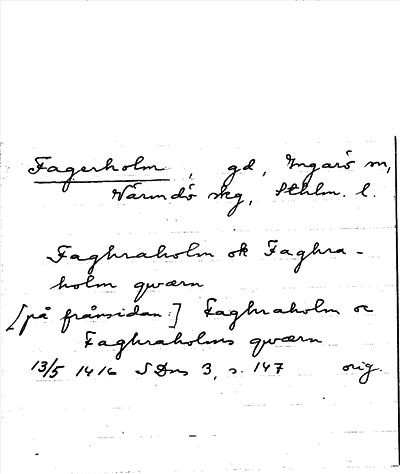 Fagerholm, gd, Ingarö sn,
Värmdö skg, Sthlm. l.
Faghraholm ok Faghra-
holm qwærn
[på frånsidan:] Faghraholm oc
Faghraholms qwærn
13/5 1416 SDns 3, s. 147 orig.